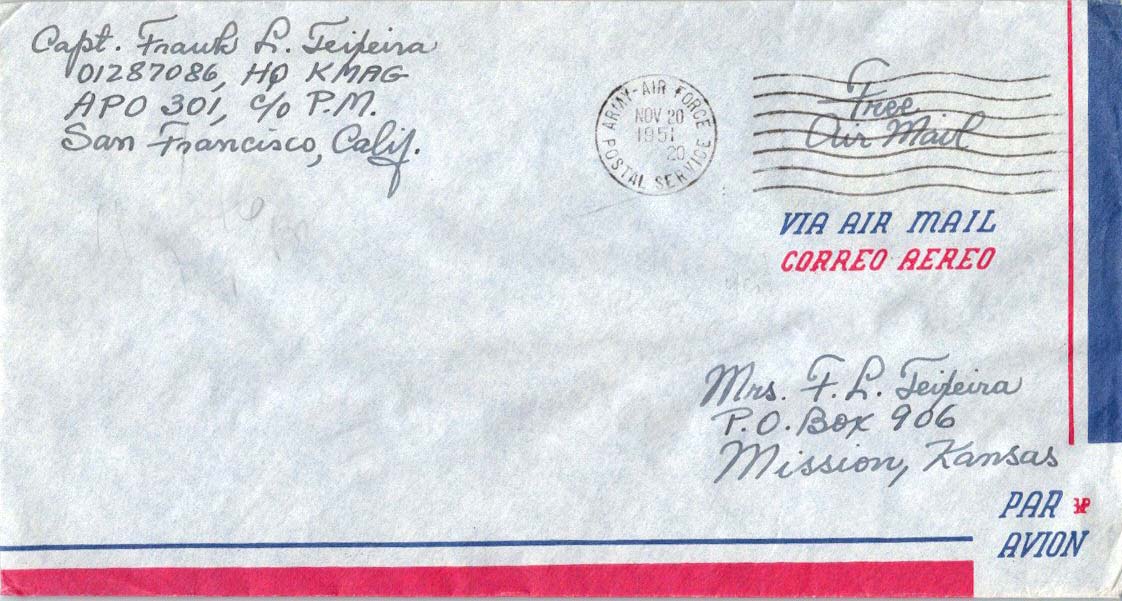 Capt. Frank L. Teixeira
01287086, HQ KMAG
APO 301, c/o P.M.
San Francisco, Calif.
ARMY-AIR FORCE
POSTAL SERVICE
NOV 20
1951
20
Free
Air Mail
VIA AIR MAIL
CORREO AEREO
Mrs. F. L. Teixeira
P.O. Box 906
Mission, Kansas
PAR
AVION